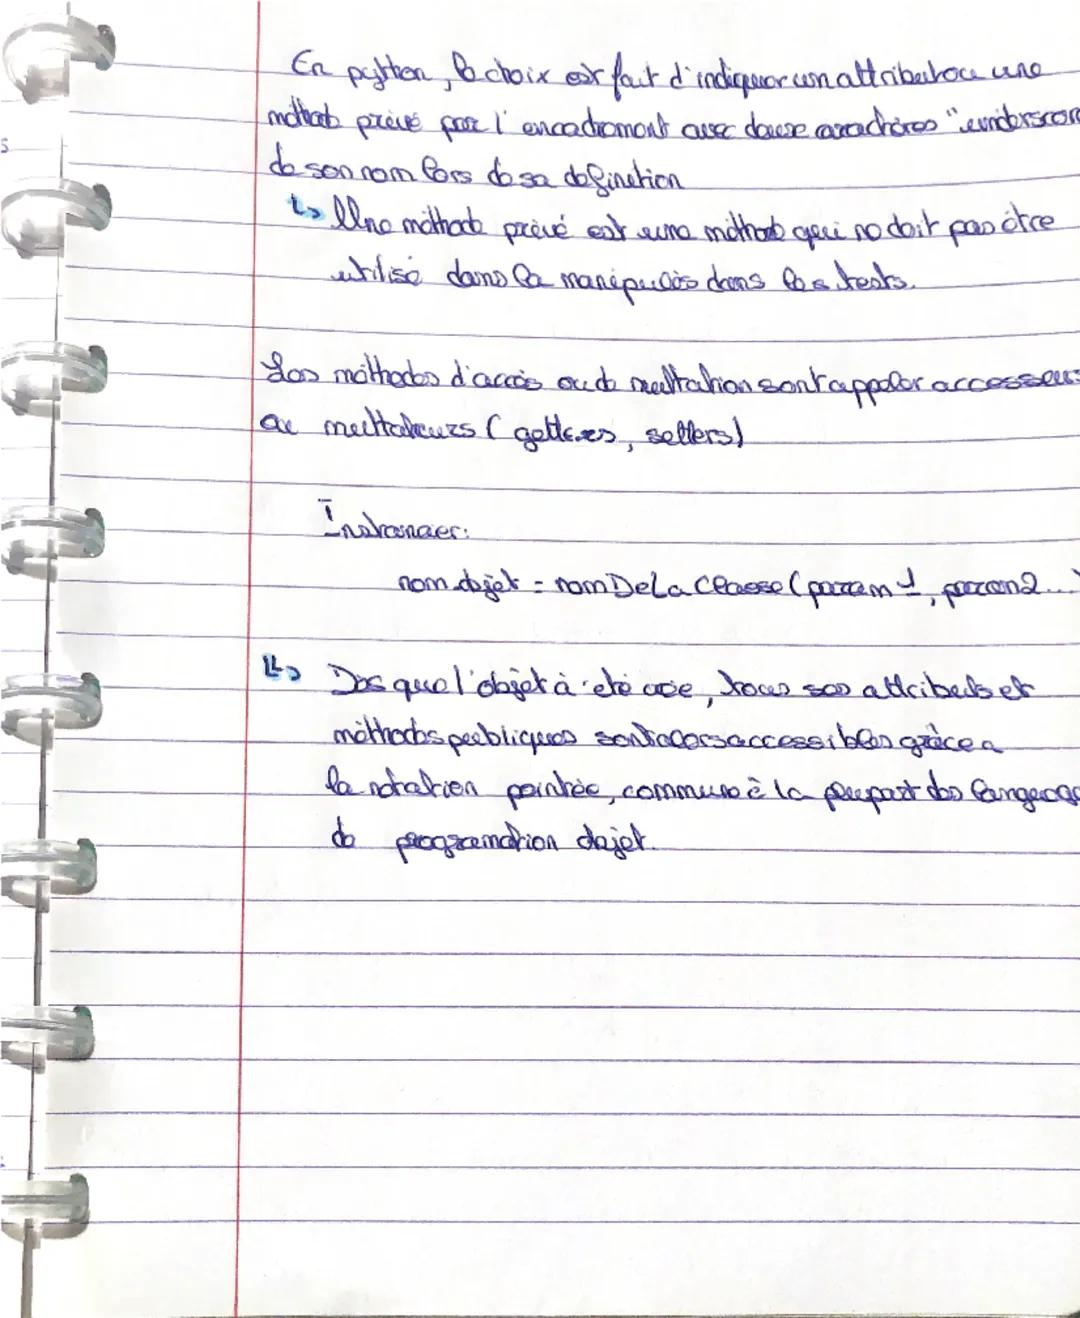 En python, le choix est fait d'indiquer un attribut ou une
méthode privé par l'encadrement avec deux caractères "underscore
de son nom lors de sa definition
↳ Une méthode privé est une méthode qui ne doit pas être
utilisé dans la manipulés dans les tests.
Les méthodes d'accès ou de multation sont appeler accesseurs
ou multateurs (getteres, setters)
Instancier:
nom dojet = nomDeLaClasse (param 1, param2...)
↳ Des que l'objet à été crée, tous ses attributs et
méthodes publiques sont alors accessibles grâce a
la notation pointée, commune à la plupart des langages
de programation dojet.